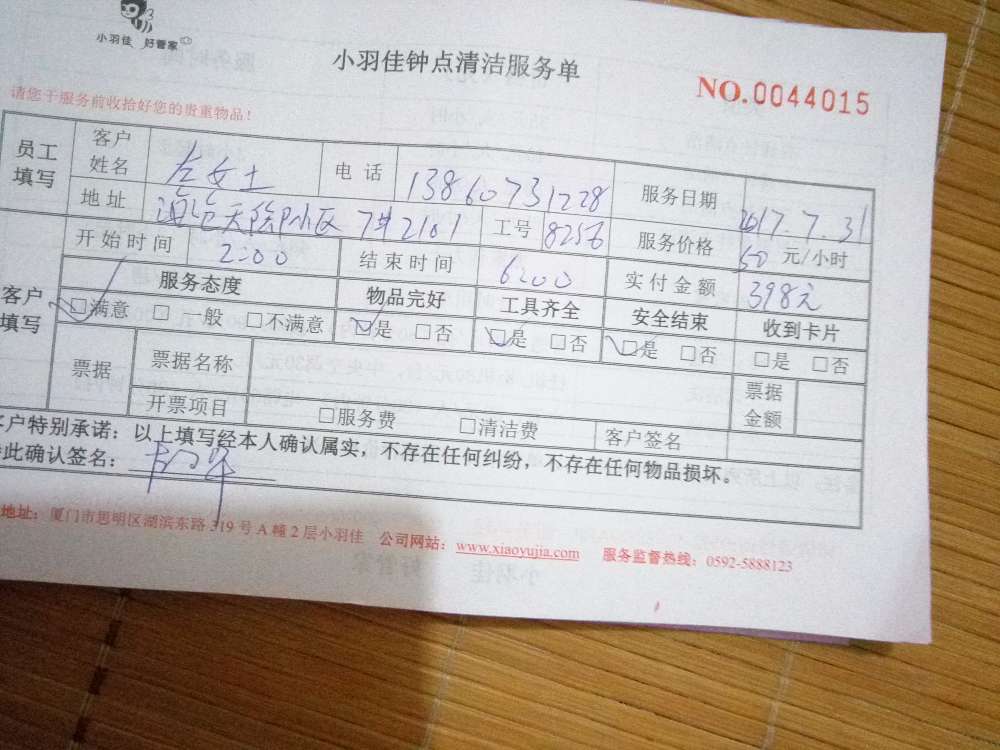 小羽佳 好管家
小羽佳钟点清洁服务单
NO.0044015
请您于服务前收拾好您的贵重物品！
员工填写 客户姓名 左女士 电话 13860731228 服务日期 2017.7.31
地址 天院小区 7#2101 工号 8256 服务价格 50 元/小时
开始时间 2:00 结束时间 6:00 实付金额 398元
客户填写 服务态度 物品完好 工具齐全 安全结束 收到卡片
□满意 □一般 □不满意 □是 □否 □是 □否 □是 □否 □是 □否
票据 票据名称 票据金额
开票项目 □服务费 □清洁费 客户签名
客户特别承诺：以上填写经本人确认属实，不存在任何纠纷，不存在任何物品损坏。
此确认签名：
地址：厦门市思明区湖滨东路319号A幢2层小羽佳 公司网站：www.xiaoyujia.com 服务监督热线：0592-5888123